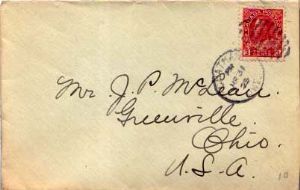 Mr. J. P. McLean.
Greenville,
Ohio.
U.S.A.
10